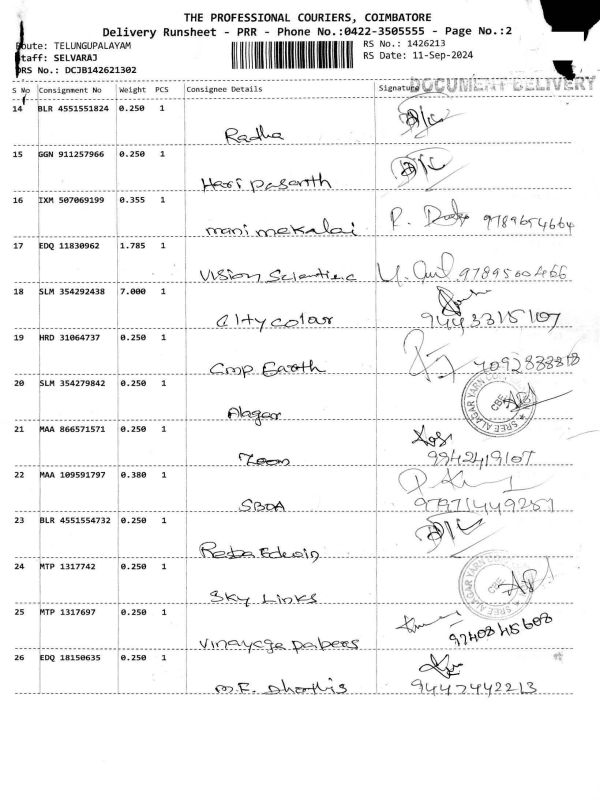 THE PROFESSIONAL COURIERS, COIMBATORE
Delivery Runsheet - PRR - Phone No.:0422-3505555 - Page No.:2
Route: TELUNGUPALAYAM
RS No.: 1426213
Staff: SELVARAJ
RS Date: 11-Sep-2024
DRS No.: DCJB142621302
DOCUMENT DELIVERY
S No Consignment No Weight PCS Consignee Details Signature
14 BLR 4551551824 0.250 1
Radha
15 GGN 911257966 0.250 1
Hari Pasanth
16 IXM 507069199 0.355 1
mani mekalai 9789654664
17 EDQ 11830962 1.785 1
Vision Scientific 9789500466
18 SLM 354292438 7.000 1
City colour 9443315107
19 HRD 31064737 0.250 1
Cmp Earth 7092888818
20 SLM 354279842 0.250 1
Alagar SREE ALAGAR YARN CBE
21 MAA 866571571 0.250 1
Zoom 9942419107
22 MAA 109591797 0.380 1
SBOA 9797449257
23 BLR 4551554732 0.250 1
Reeba Edwin
24 MTP 1317742 0.250 1
Sky Links SREE ALAGAR YARN CBE
25 MTP 1317697 0.250 1
Vinayaga papers 9740845608
26 EDQ 18150635 0.250 1
m.F. 9447442213